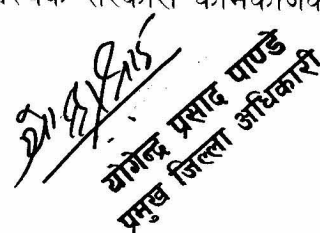 सरकारी
योगेन्द्र प्रसाद पाण्डे
प्रमुख जिल्ला अधिकारी